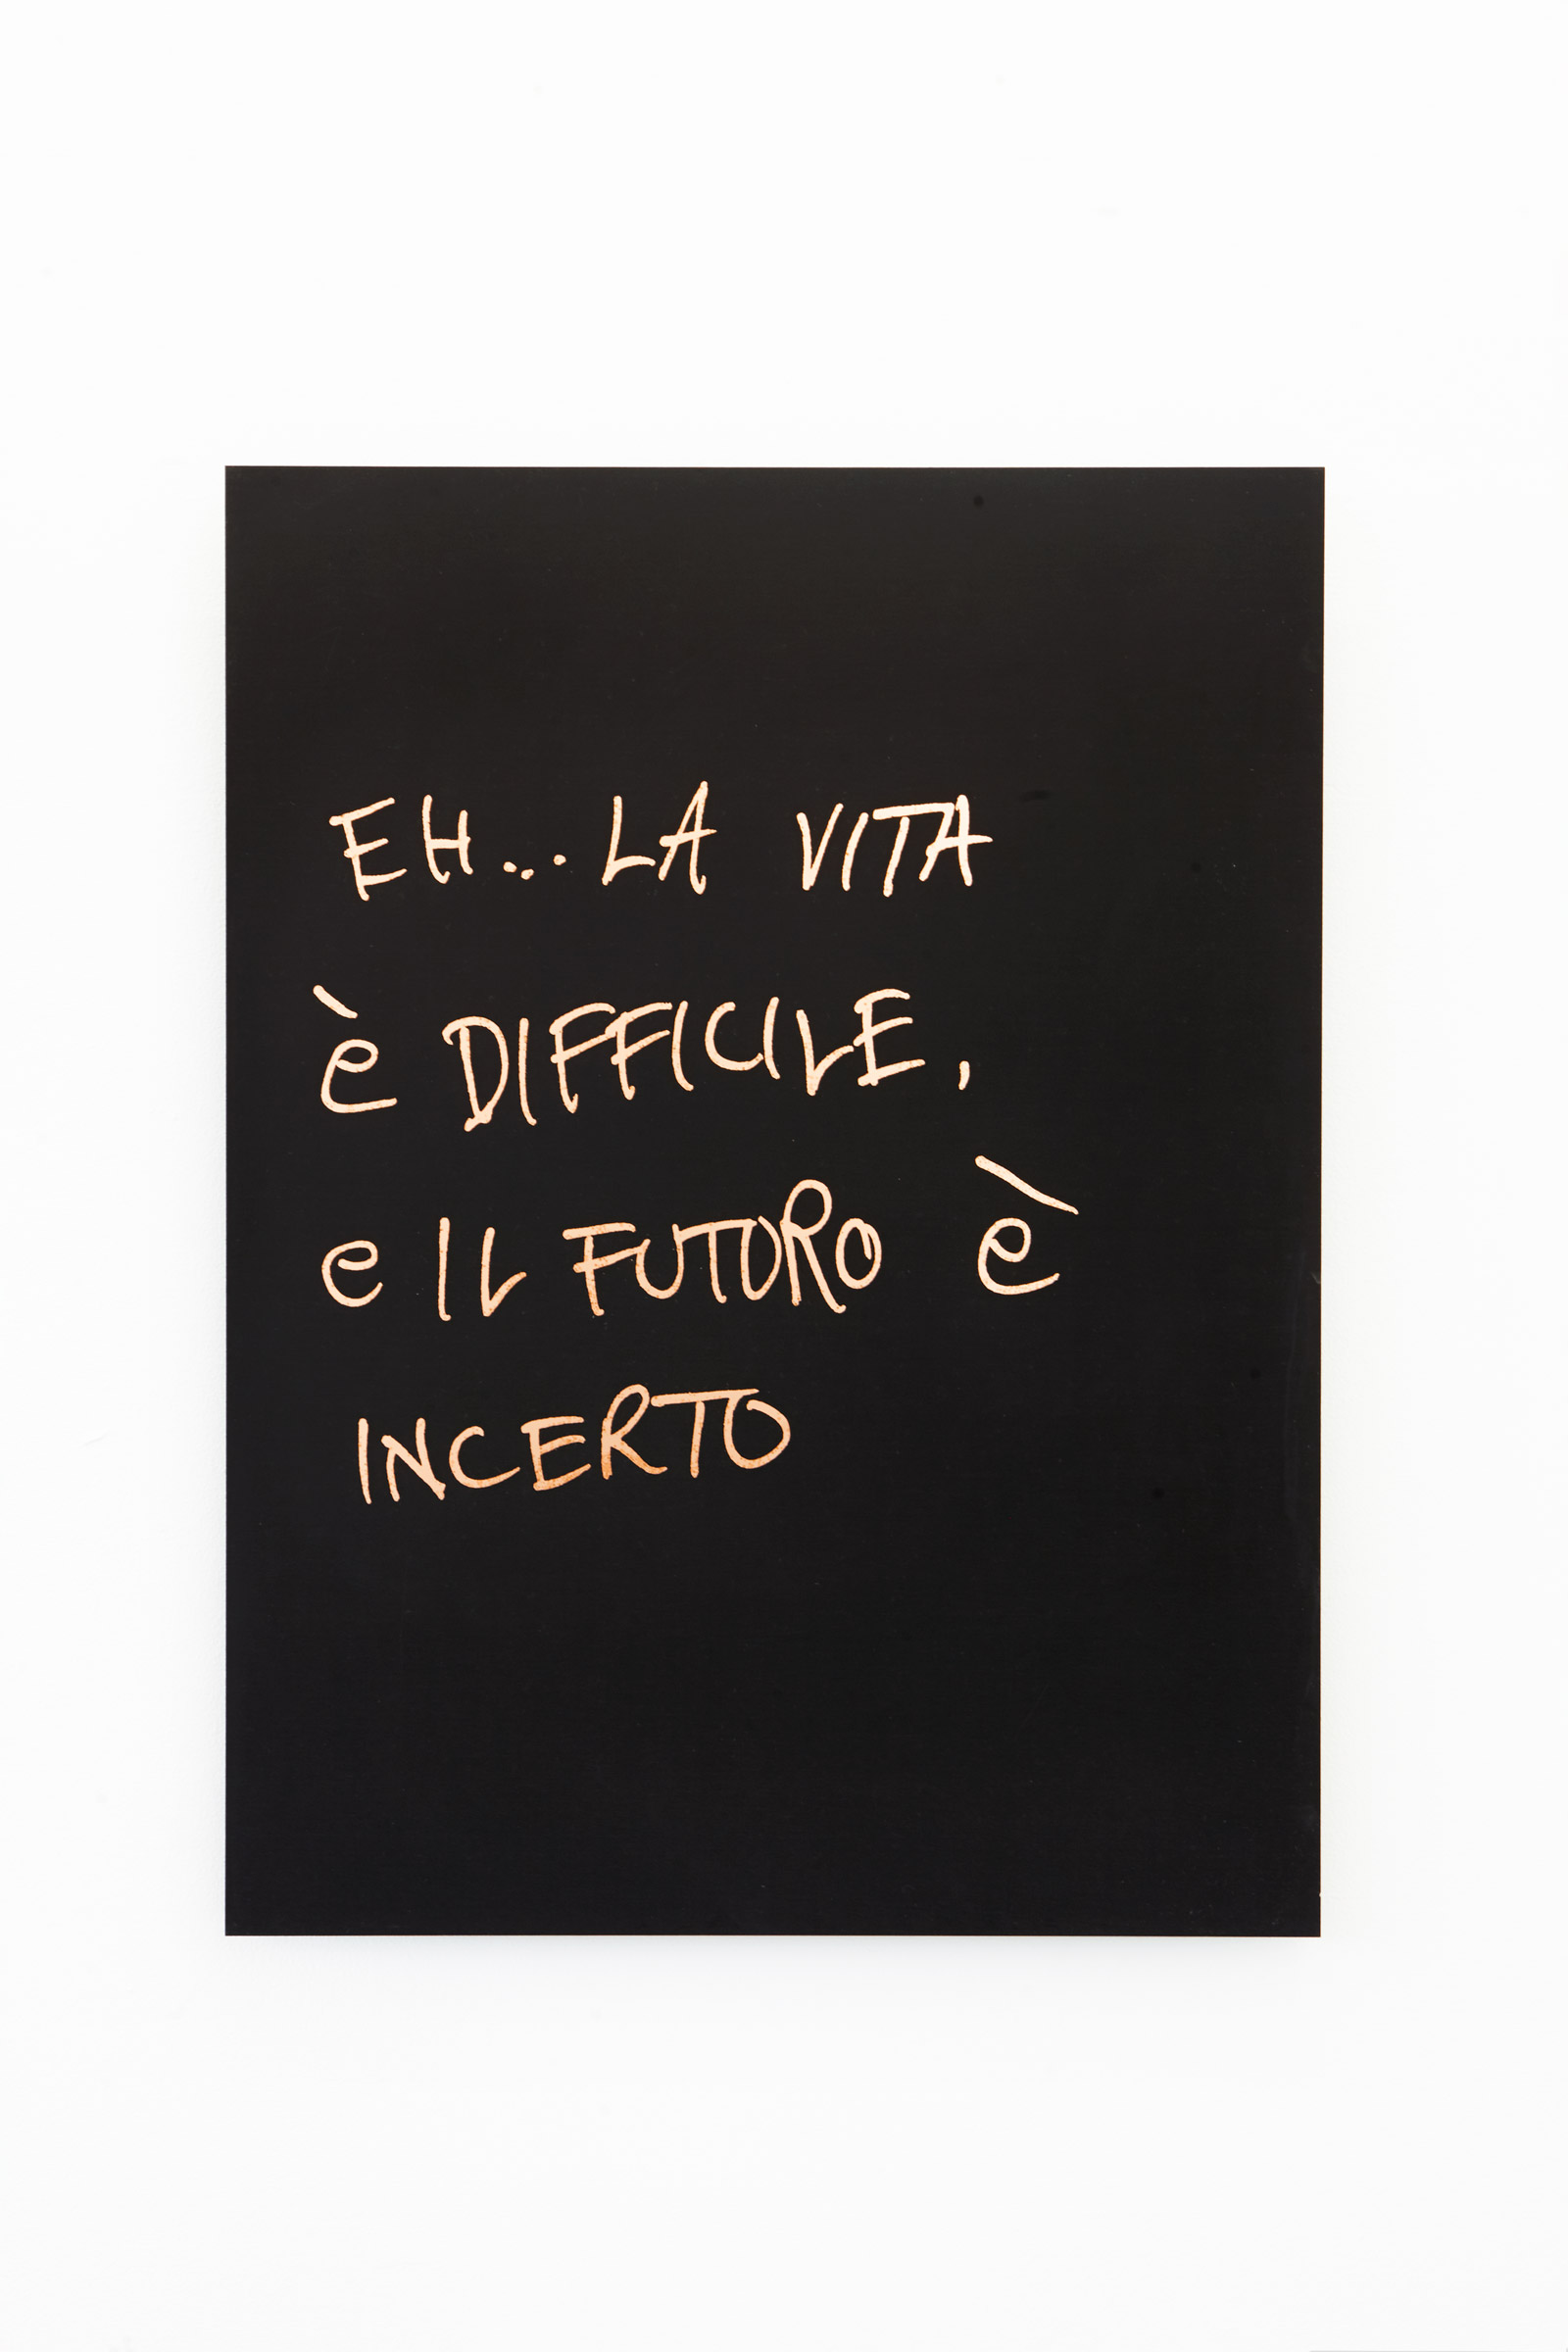 EH... LA VITA
è DIFFICILE,
e IL FUTURO è
INCERTO